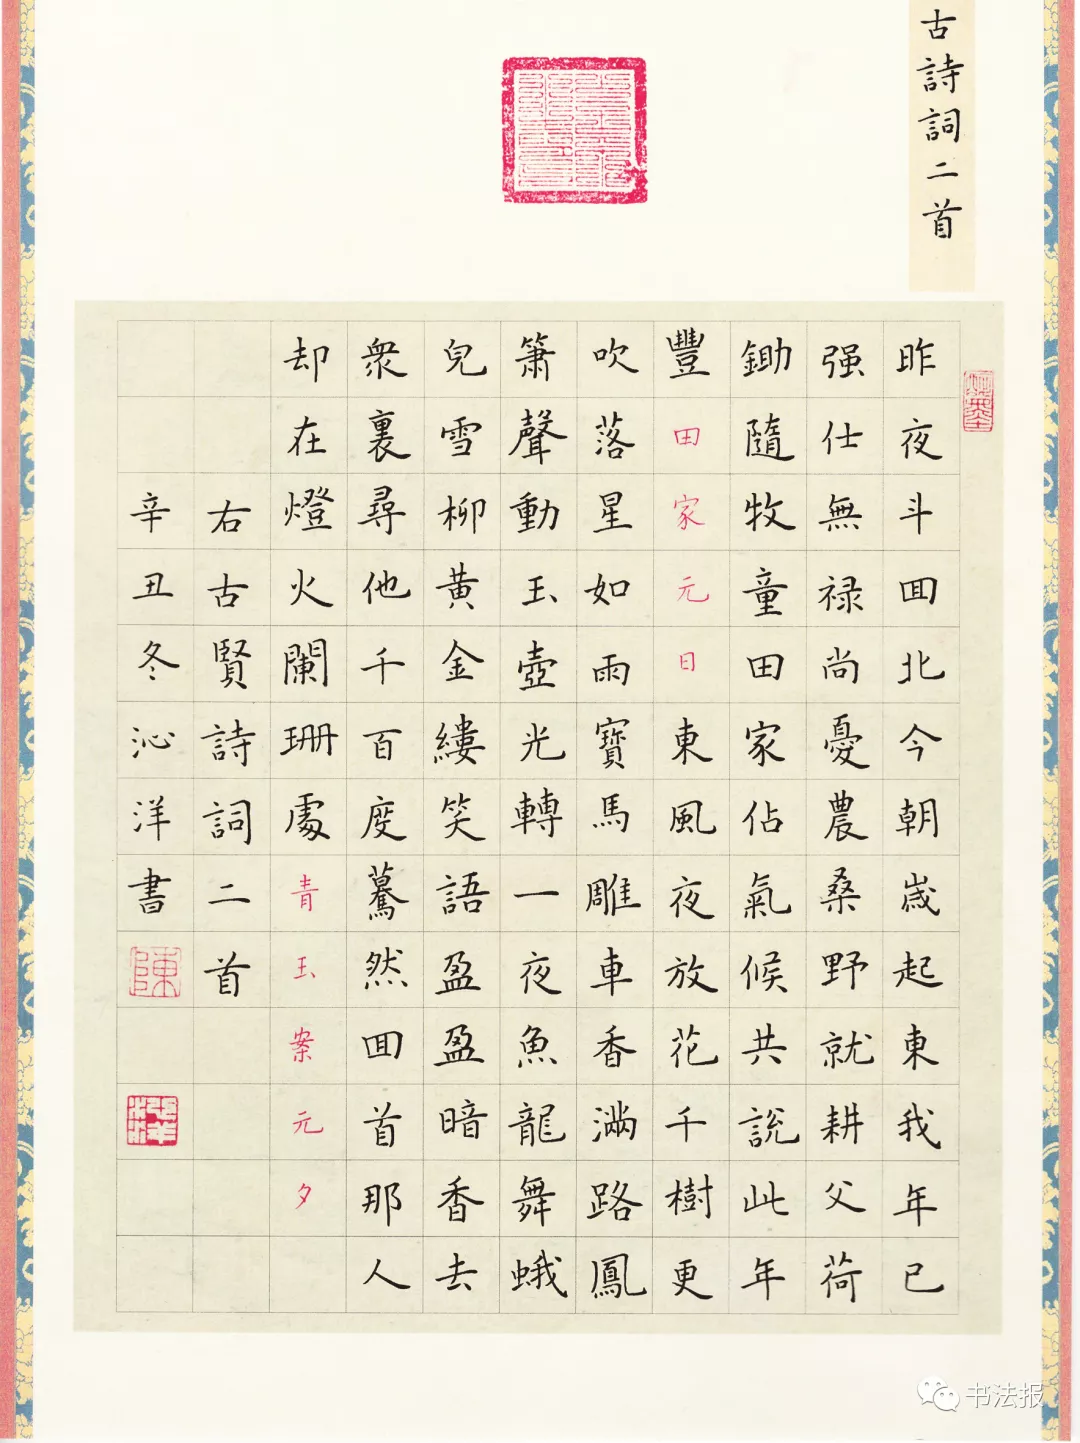 古詩詞二首
昨夜斗囬北今朝歲起東我年已
强仕無禄尚憂農桑野就耕父荷
鋤隨牧童田家佔氣候共説此年
豐田家元日東風夜放花千樹更
吹落星如雨寶馬雕車香滿路鳳
簫聲動玉壺光轉一夜魚龍舞蛾
兒雪柳黄金縷笑語盈盈暗香去
衆裏尋他千百度驀然囬首那人
却在燈火闌珊處青玉案元夕
右古賢詩詞二首
辛丑冬沁洋書
陳
书法报